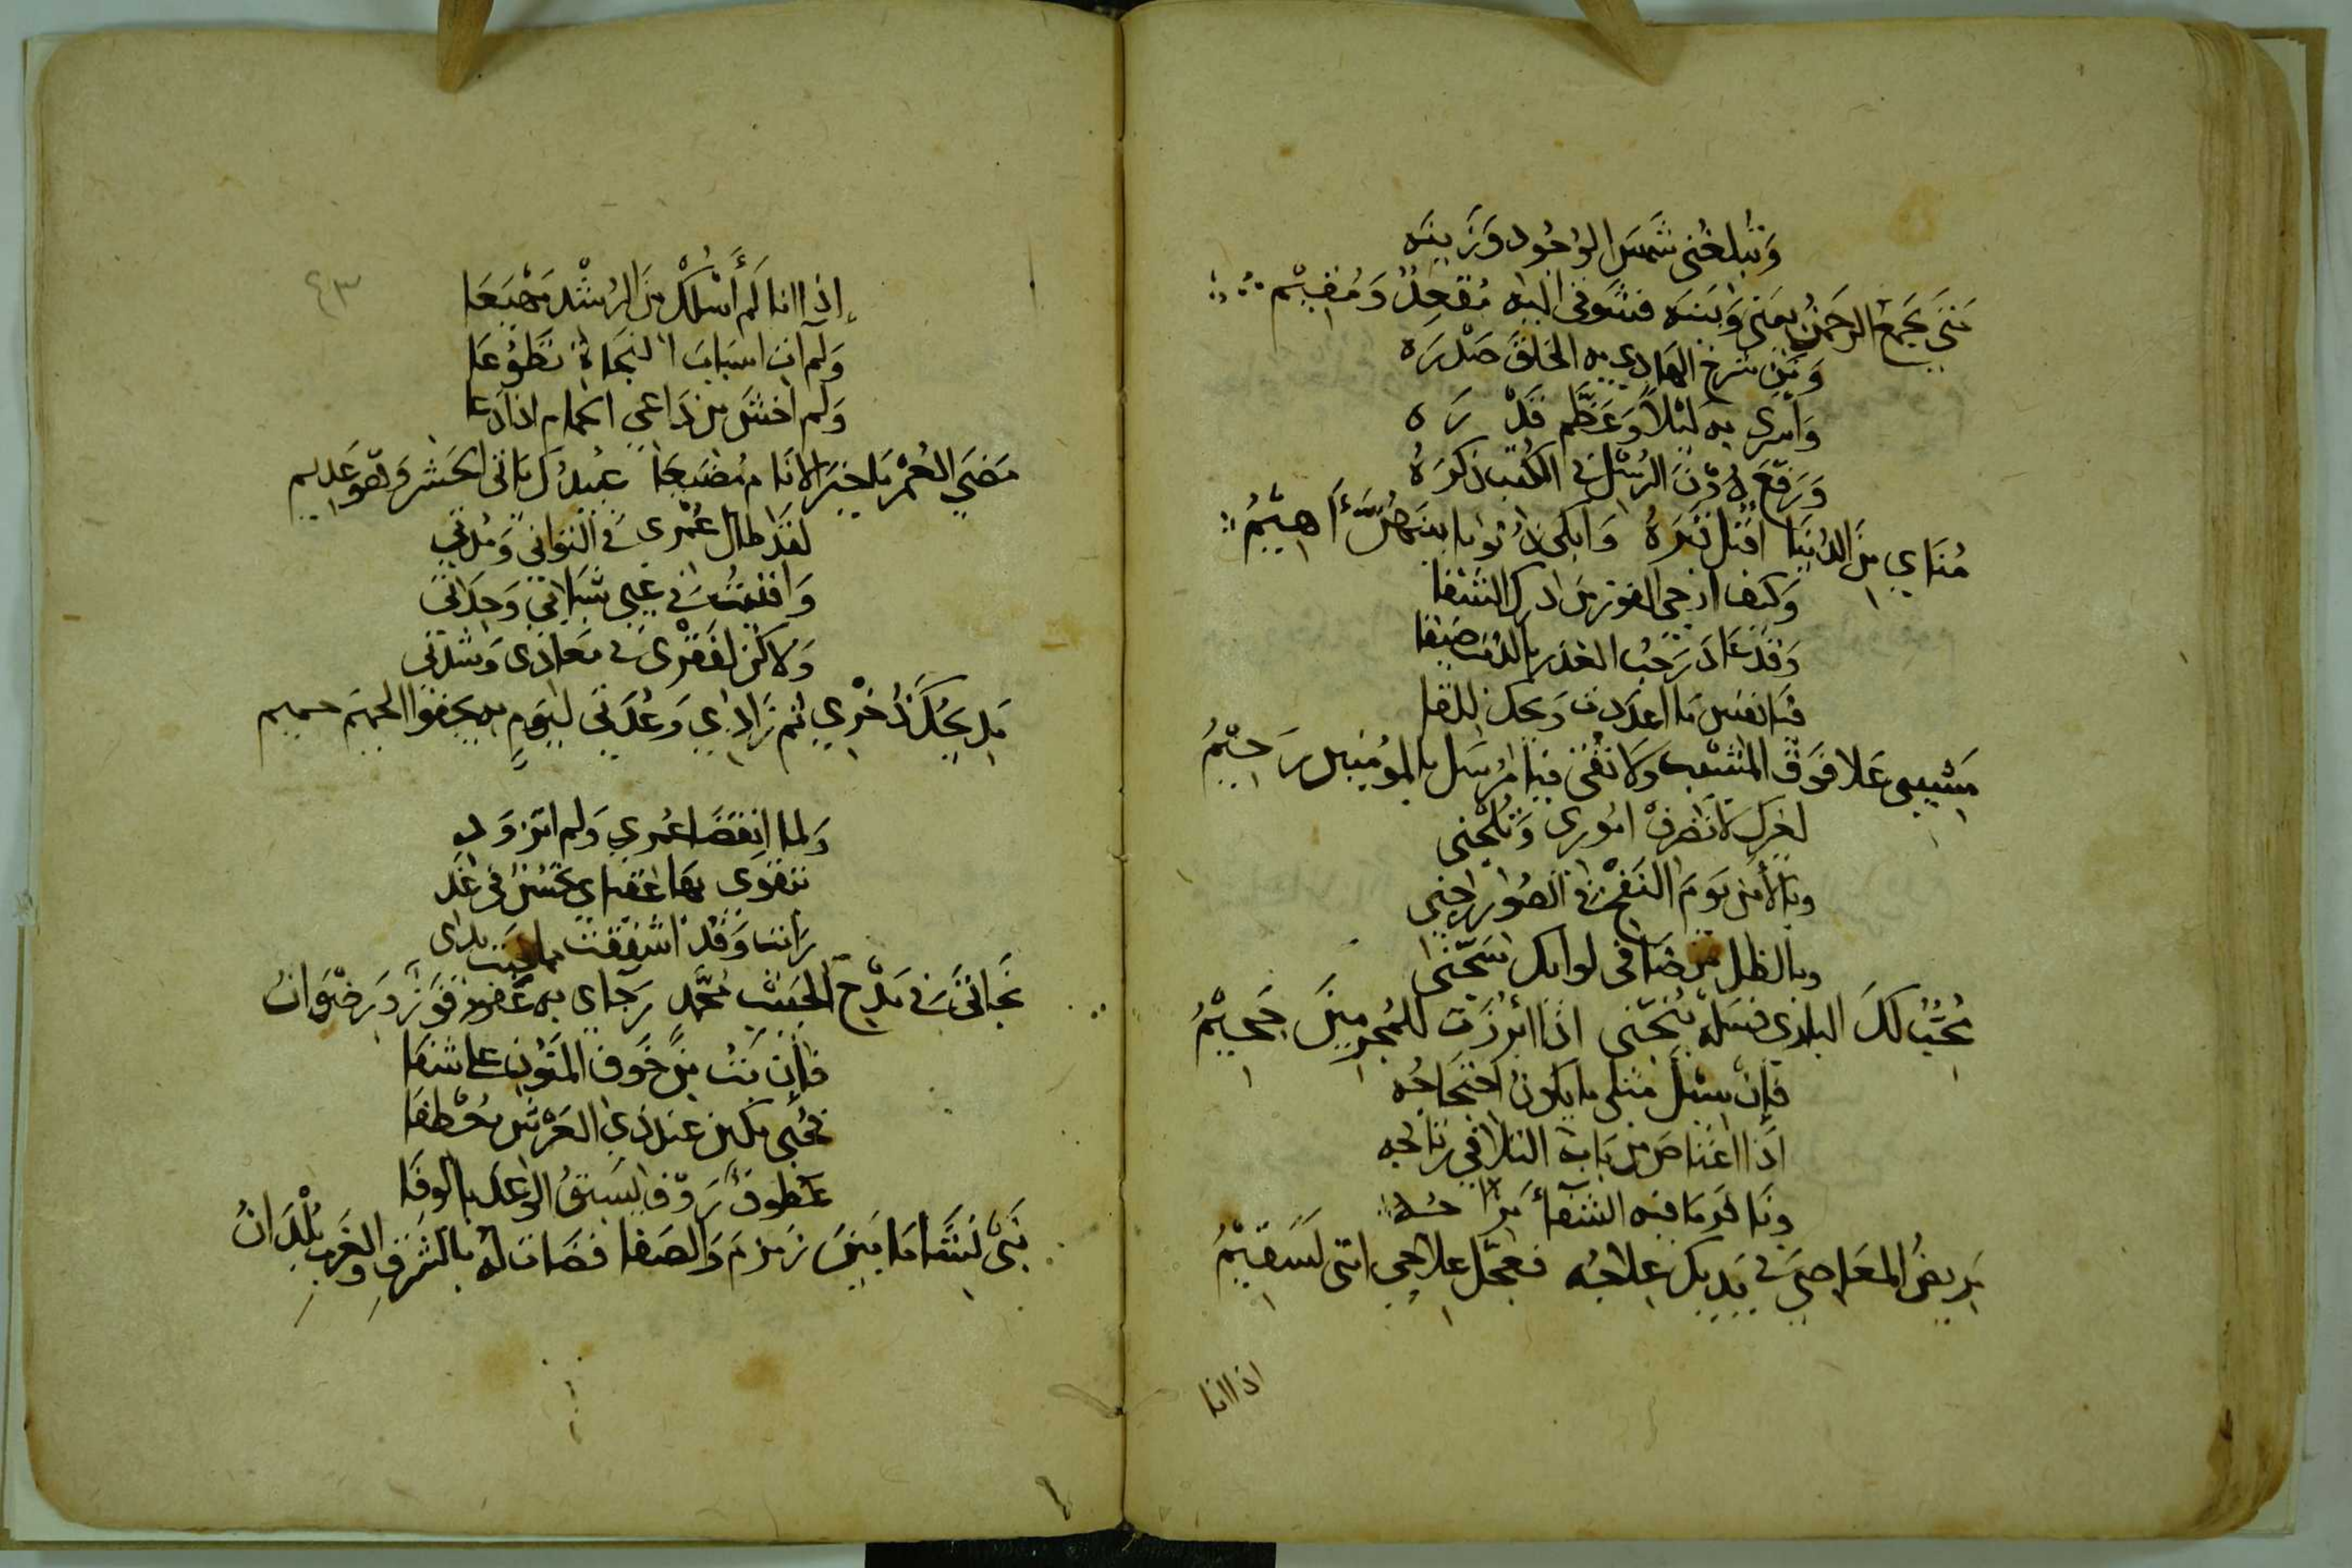 وَتُبلغني شَمسَ الوُجُود وَزَينَه
مَتَى يَجمَع الرحمَنُ بيَني وَبَينَه فشَوقي اليه مُقعِدٌ وَمُقِيْم
وَمَن شرَح الهَادي به الخلقَ صَدْرَه
وَاَسرى به لَيْلاً وَعَظَّم قَدْرَه
وَرَفّعَ دُوْنَ الرُسْل في الكُتب ذكرَهُ
مُنَاي مِنَ الدُنيَا اقبّل تُربَهُ وَابكي ذُنُوبا بينَهُنَّ أَهِيْمُ
وَكيفَ ارجي الفوز من ادرك الشفا
وَقد عَادَ رَحبُ العُذر بالذنب ضيقا
فيَا نفس مَا اعدَدت وَيحك للقا
مَشيبى عَلا فَوقَ المَشيب وَلا تُقى فيا مُرسَل بالمؤمنين رَحِيْمُ
لغيرك لا تَصْرفْ امُوري وَنَجّني
وبالأمن يَومَ النَفخ في الصُور
وبالظل من ضَافي لوائك
مُحِبُّ لكَ البلادى فسَله يُنجّني اذا ابُرزَت للمُجرِمينَ جَحِيْمُ
فَإنْ يسْئل مثلي ما يَكونُ احتجَاجُه
اذَا اعتَاصَ من بَاب التلافي رتَاجُه
وبَا قد مَا فيه الشفاء مزَاجُه
مَريضُ المعَاصي في يَدَيك علاجُه فعجّل علاجي انني لَسَقِيْمُ
اذا انا
٤٣
إذا انا لَم أَسْلُكْ مِنَ الرُشْد مَهْيَعَا
وَلم آت اسبَابَ النجَاة تَطوُّعَا
وَلم اخشَ من دَاعي الحمام اذا دَعا
مَضى العُمْر يَا خيرَ الانَام مُضيعًا عُبيدُك يَاتى الحَشر وَهو عَديم
لقد طال عُمْرى في التواني وَمُدتي
وَافنيتُ في غيي شبابي وَجدّتي
وَلاكن لفَقْرى في مَعادى وَشدّتي
مَديحُكَ ذُخْرى ثم زَادي وَعُدَتي ليَومٍ به يجفوا الحميم حميم
وَلما انقضَا عُمرى وَلم اتزوّد
بتقوى بها عقباي تحسُنُ في غَد
رَايت وَقَد اشفقت مما جَنت يدى
نجَاتى في مَدْح الحَبيْب مُحمَّد رَجاى به عَفو وفَوز وَرضوَانُ
فإن بتُ مِنَ خَوف المنَون علَى شفا
فحُبي مكين عندَ ذي العَرْش مُصْطفا
عَطوفٌ رَوْف يَسبقُ الوَعد بالوفَا
نَبيٌّ نشَا مَا بَينَ زمزم وَالصفا فضَات لهُ بالشَرق وَالغَرب بُلْدَانُ